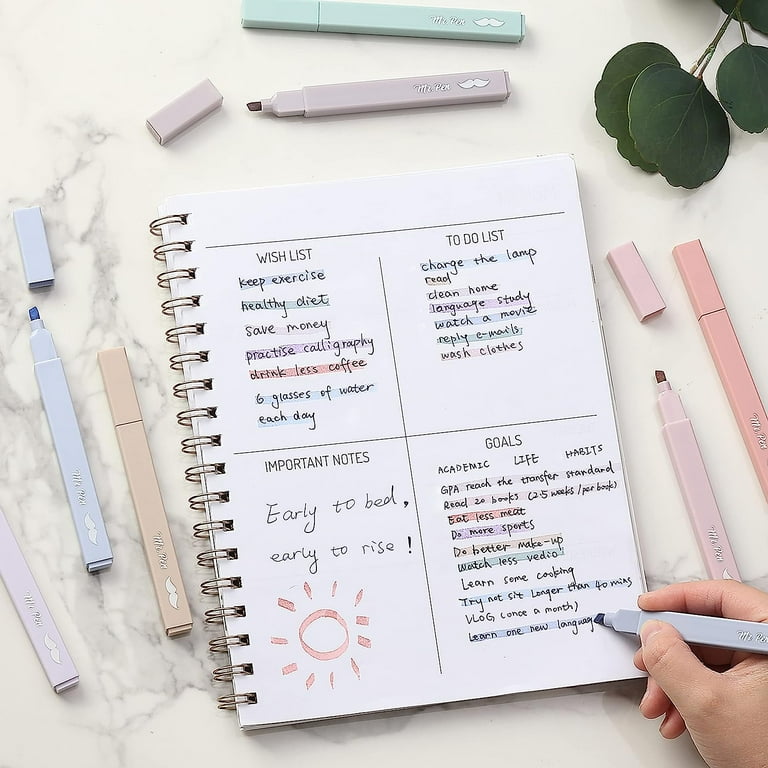 Mr. Pen
Mr. Pen
WISH LIST
keep exercise
healthy diet
save money
practise calligraphy
drink less coffee
6 glasses of water
each day
TO DO LIST
charge the lamp
read
clean home
language study
watch a movie
reply e-mails
wash clothes
IMPORTANT NOTES
Early to bed,
early to rise !
GOALS
ACADEMIC LIFE HABITS
GPA reach the transfer standard
Read 20 books (2.5 weeks / per book)
Eat less meat
Do more sports
Do better make-up
Watch less vedio
Learn some cooking
Try not sit longer than 40 mins
VLOG (once a month)
Learn one new language
Mr. Pen
Mr. Pen
Mr. Pen
Mr. Pen
Mr. Pen
Mr. Pen